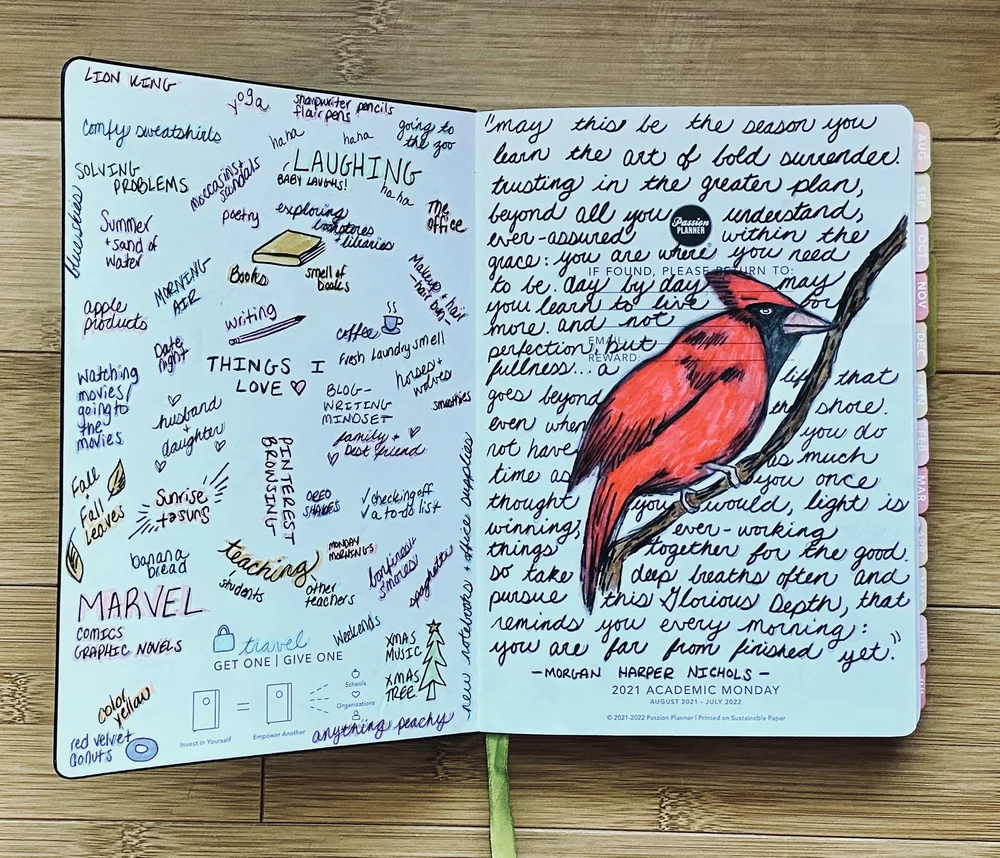 LION KING
yoga
sharpwriter pencils
flair pens
comfy sweatshirts
haha
haha
going to
the zoo
SOLVING
PROBLEMS
moccasins +
sandals
LAUGHING
BABY LAUGHS!
haha
blue skies
Summer
+ sand or
water
poetry
exploring
bookstores
+ libraries
The
office
MORNING
AIR
Books
smell of
books
Makeup + hair
apple
products
writing
coffee
Date
night
THINGS I
LOVE
fresh laundry smell
horses +
wolves
smoothies
watching
movies/
going to
the
movies
husband
+
daughter
BLOG-
WRITING
MINDSET
family +
best friend
PINTEREST
BROWSING
Fall
+
Fall
leaves
Sunrise
+
sunset
OREO
SHAKES
✓checking off
✓a to-do list
banana
bread
teaching
students
other
teachers
MONDAY
MORNINGS
bonfires +
s'mores
spaghetti
new notebooks + office supplies
MARVEL
COMICS
GRAPHIC NOVELS
travel
Weekends
XMAS
MUSIC
XMAS
TREE
GET ONE | GIVE ONE
Schools
Organizations
=
Invest in Yourself
Empower Another
color
yellow
red velvet
donuts
anything peachy
"may this be the season you
learn the art of bold surrender.
trusting in the greater plan,
beyond all you understand,
Passion
PLANNER
ever-assured within the
grace: you are where you need
IF FOUND, PLEASE RETURN TO:
to be. day by day may
you learn to live for
more. and not
EMAIL
perfection, but
REWARD:
fullness... a life that
goes beyond the shore.
even when you do
not have as much
time as you once
thought you would, light is
winning, ever-working
things together for the good.
so take deep breaths often and
pursue this Glorious Depth, that
reminds you every morning:
you are far from finished yet."
-MORGAN HARPER NICHOLS-
2021 ACADEMIC MONDAY
AUGUST 2021 - JULY 2022
© 2021-2022 Passion Planner | Printed on Sustainable Paper
AUG
SEP
OCT
NOV
DEC
JAN
FEB
MAR